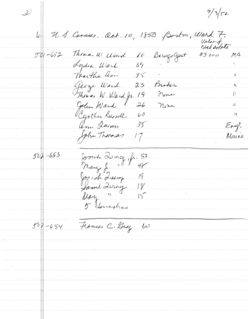 2
9/3/52
6 U.S. Census. Oct. 10, 1850 Boston, Ward 7.
Value of
Real estate
501-652 Thomas W. Ward 60 $3000 MA
Lydia Ward 59 "
Martha Ann 45 " "
George Ward 23 Broker "
Thomas W. Ward Jr. 19 None "
John Ward 26 None "
Cynthia Russell 60 "
Ann 35 Engl.
John Thomas 17 Maine
502-653 Josiah Quincy Jr. 50
Mary J. " 48
Josiah Quincy 19
Saml Quincy 18
Mary " 15
5
509-654 Frances C. Gray 60